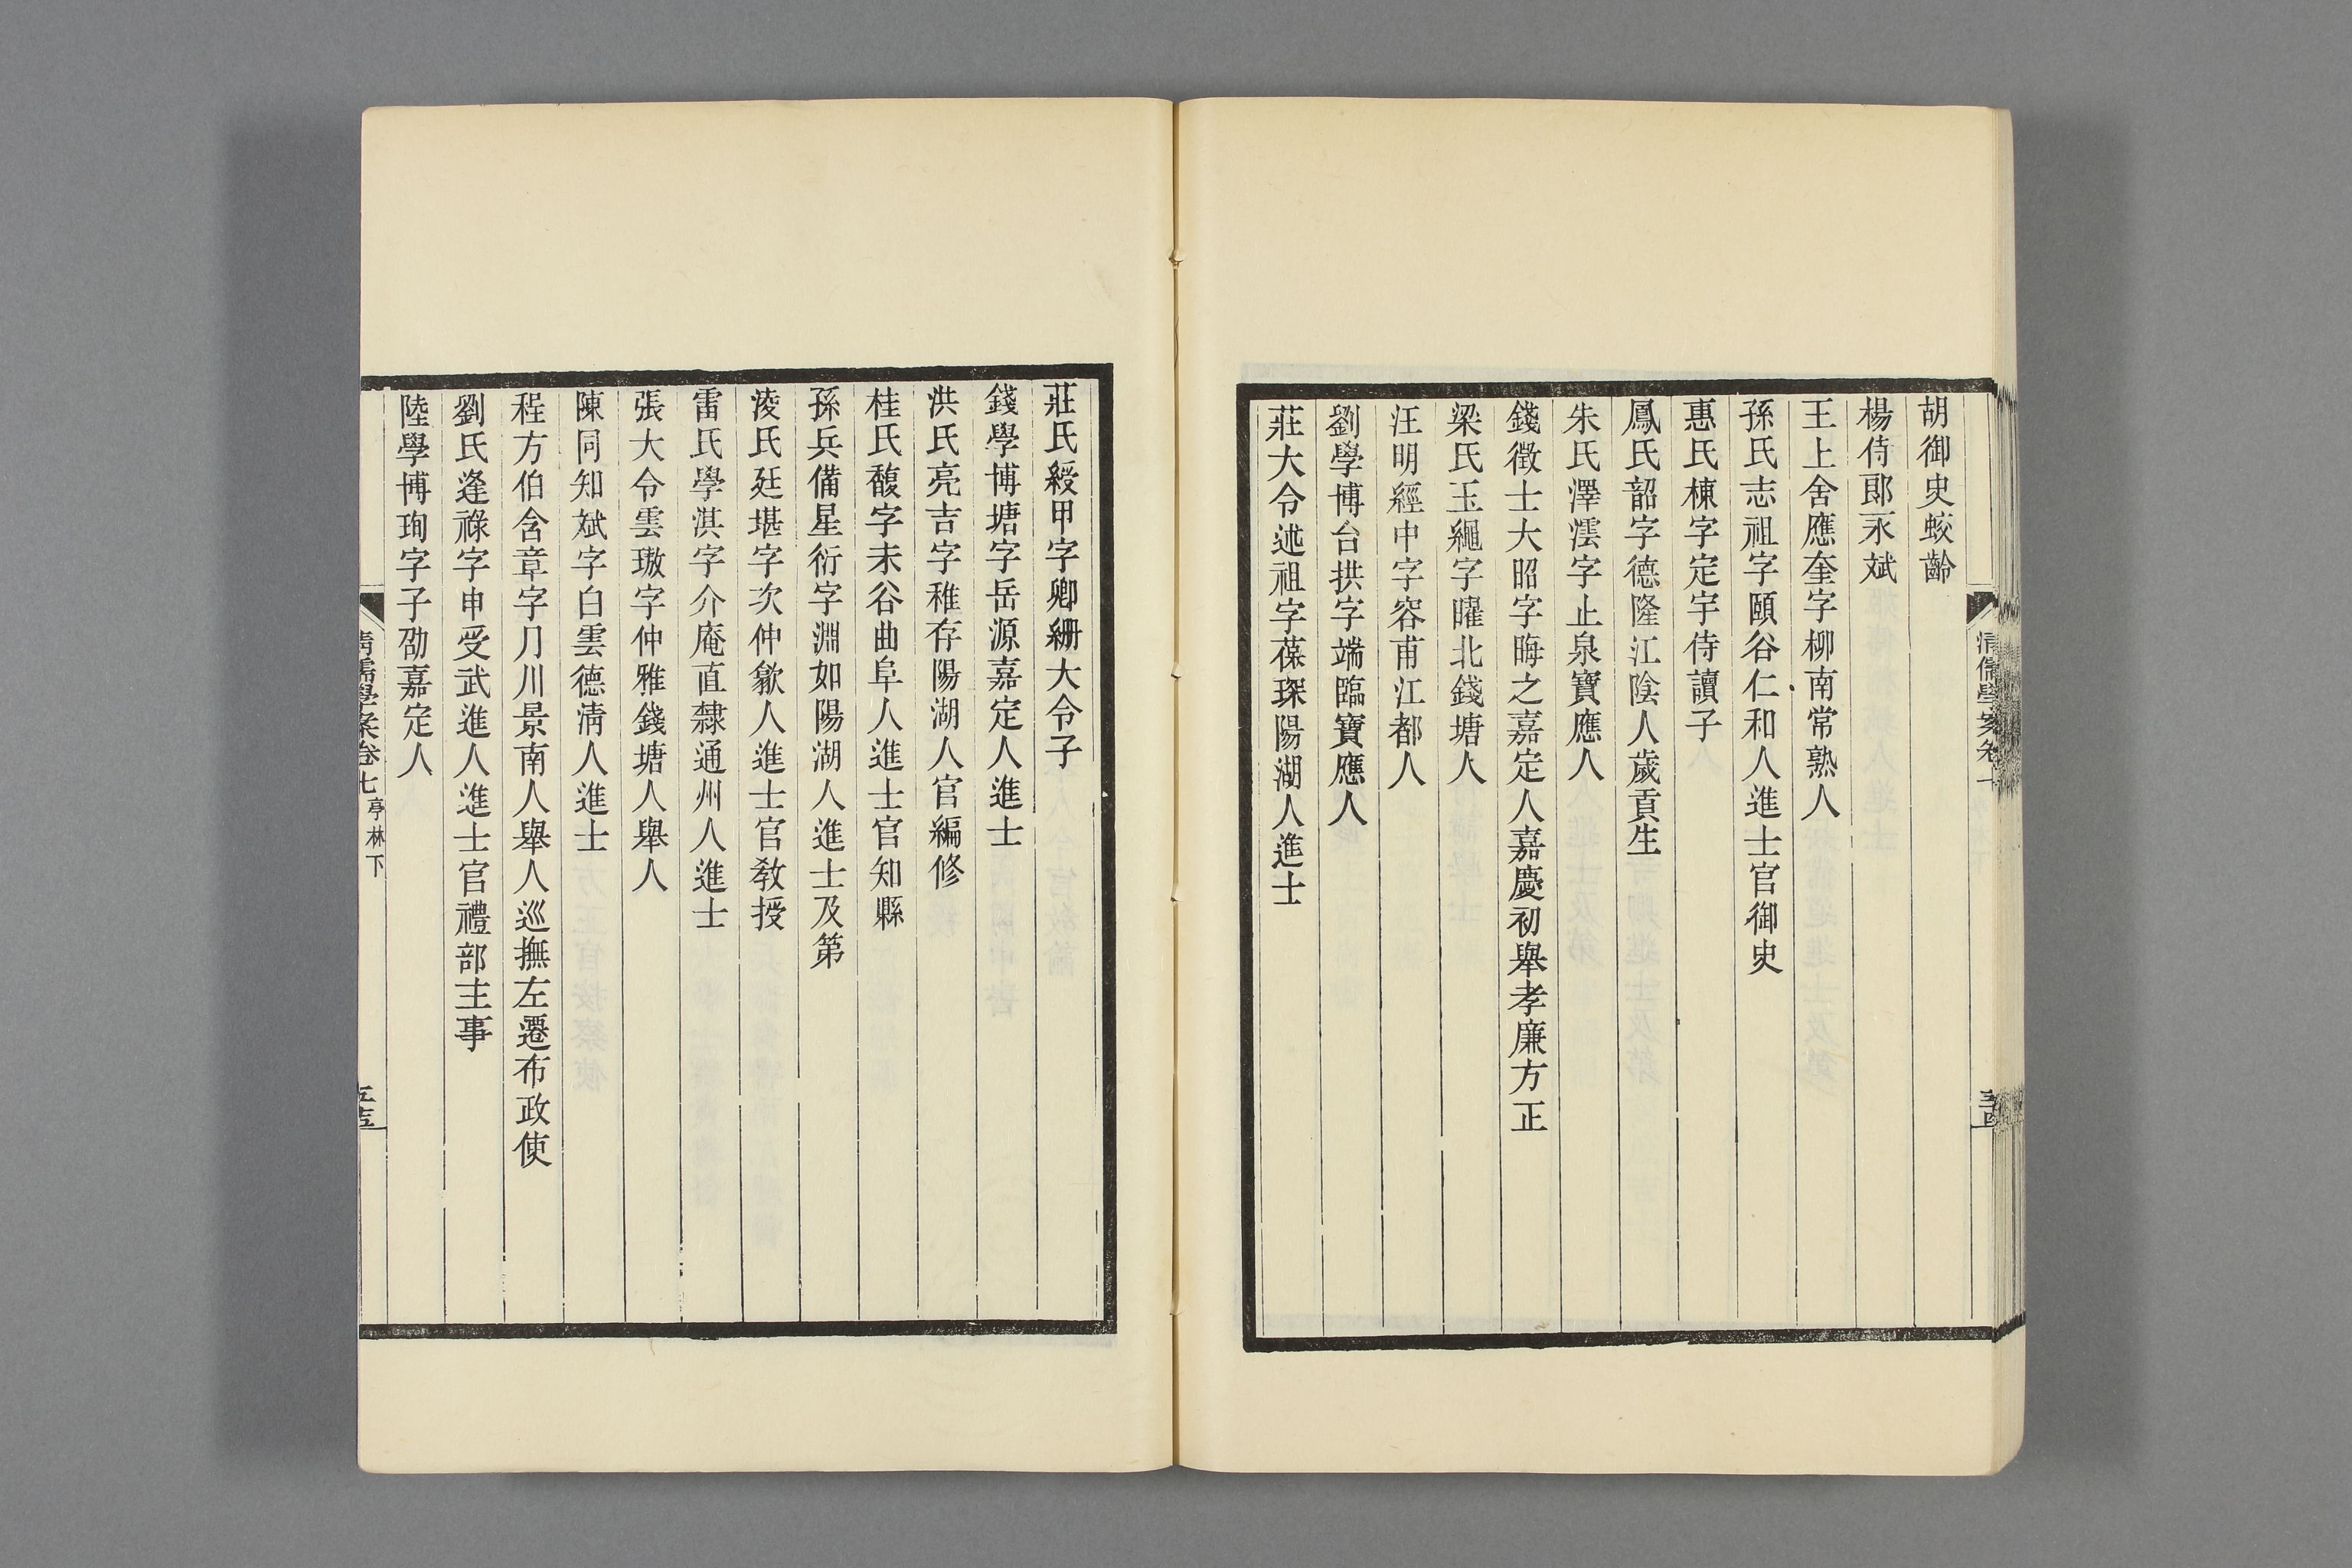 胡御史蛟齡
楊侍郎永斌
王上舍應奎字柳南常熟人
孫氏志祖字頤谷仁和人進士官御史
惠氏棟字定宇侍讀子
鳳氏韶字德隆江陰人歲貢生
朱氏澤澐字止泉寶應人
錢徵士大昭字晦之嘉定人嘉慶初舉孝廉方正
梁氏玉繩字曜北錢塘人
汪明經中字容甫江都人
劉學博台拱字端臨寶應人
莊大令述祖字葆琛陽湖人進士
莊氏綬甲字卿緟大令子
錢學博塘字岳源嘉定人進士
洪氏亮吉字稚存陽湖人官編修
桂氏馥字未谷曲阜人進士官知縣
孫兵備星衍字淵如陽湖人進士及第
淩氏廷堪字次仲歙人進士官敎授
雷氏學淇字介庵直隸通州人進士
張大令雲璈字仲雅錢塘人舉人
陳同知斌字白雲德清人進士
程方伯含章字月川景南人舉人巡撫左遷布政使
劉氏逢祿字申受武進人進士官禮部主事
陸學博珣字子劭嘉定人
清儒學案卷七 亭林下